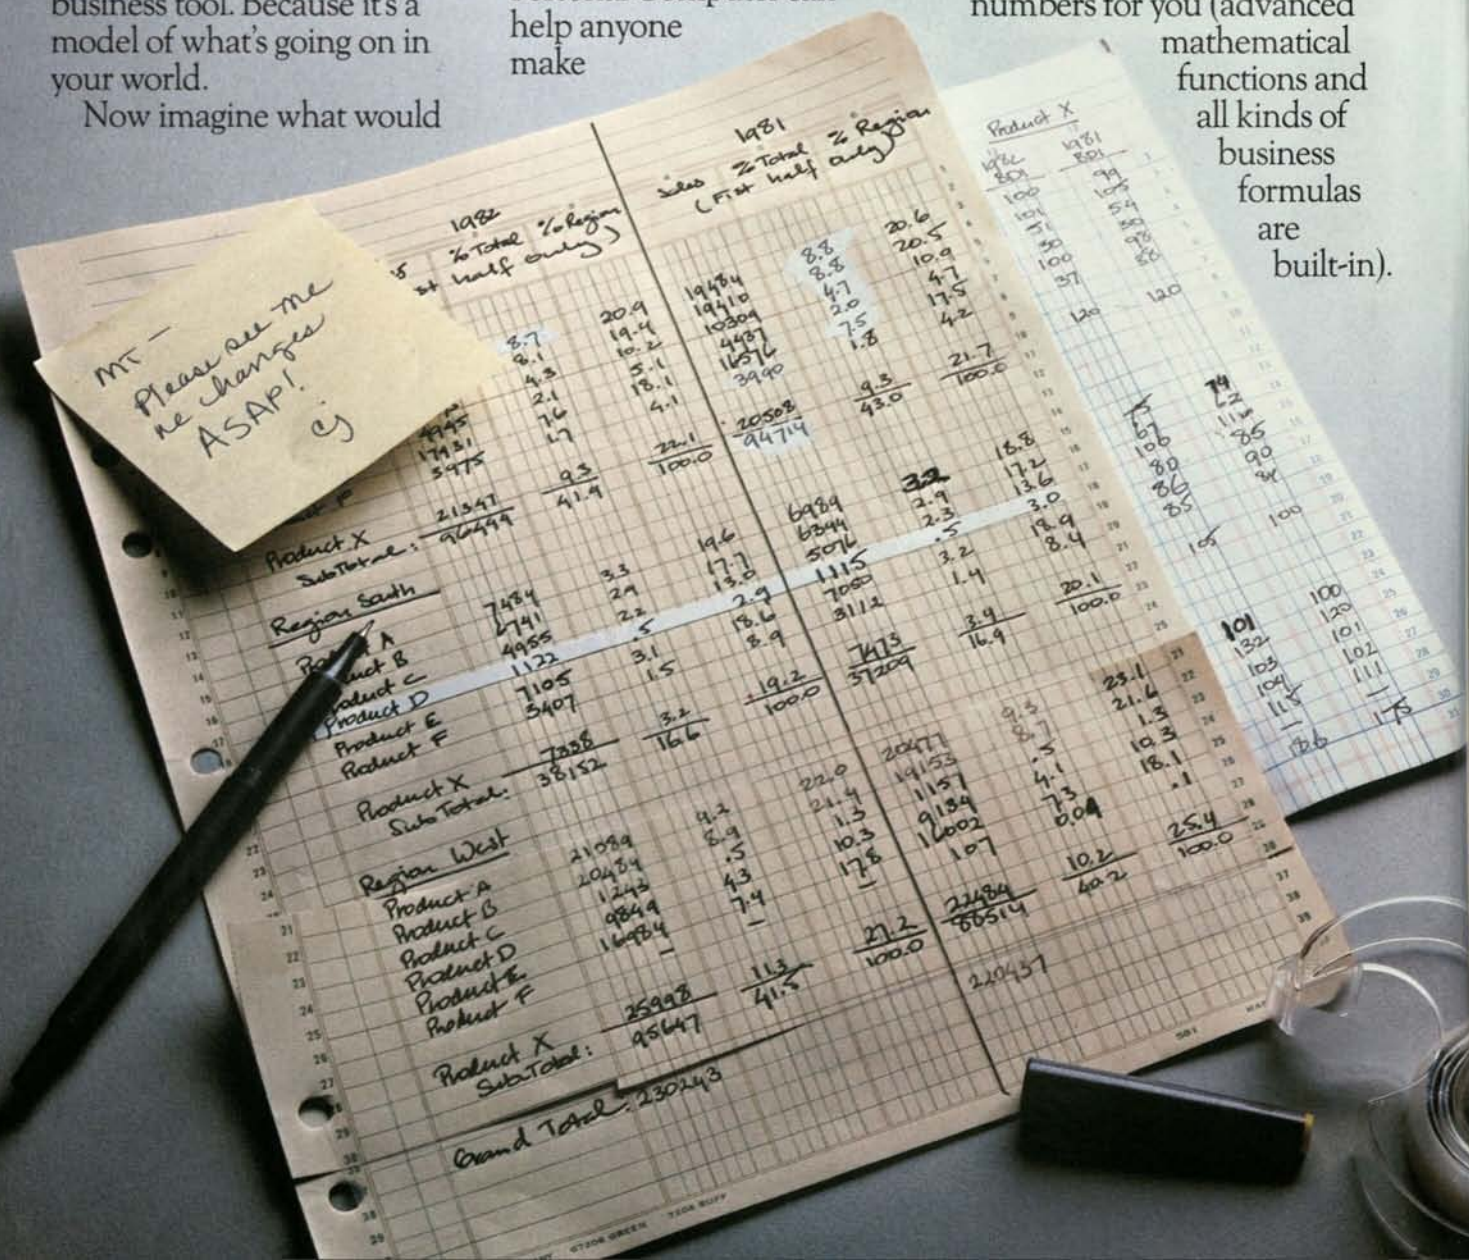 business tool. Because it's a
model of what's going on in
your world.
Now imagine what would
help anyone
make
numbers for you (advanced
mathematical
functions and
all kinds of
business
formulas
are
built-in).
MT —
Please see me
re changes
ASAP!
CJ
1982 1981
% Total % Region Sales % Total % Region
half only) (First half only)
8.7 20.9 19484 8.8 20.6
8.1 19.4 19410 8.8 20.5
4.3 10.2 10309 4.7 10.9
4945 2.1 5.1 4437 2.0 4.7
17931 7.6 18.1 16576 7.5 17.5
3975 1.7 4.1 3990 1.8 4.2
Product X 21347 9.3 22.1 20508 9.3 21.7
SubTotal: 96444 41.9 100.0 94714 43.0 100.0
Region South
Product A 7484 3.3 19.6 6989 3.2 18.8
Product B 6741 2.9 17.7 6394 2.9 17.2
Product C 4955 2.2 13.0 5076 2.3 13.6
Product D 1122 .5 2.9 1115 .5 3.0
Product E 7105 3.1 18.6 7050 3.2 18.9
Product F 3407 1.5 8.9 3112 1.4 8.4
Product X 7338 3.2 19.2 7473 3.4 20.1
SubTotal: 38152 16.6 100.0 37209 16.9 100.0
Region West
Product A 21089 9.2 22.0 20477 9.3 23.1
Product B 20484 8.9 21.4 19153 8.7 21.6
Product C 1243 .5 1.3 1157 .5 1.3
Product D 9849 4.3 10.3 9134 4.1 10.3
Product E 16984 7.4 17.8 16002 7.3 18.1
Product F — — — 107 0.04 .1
Product X 25998 11.3 27.2 22484 10.2 25.4
SubTotal: 95647 41.5 100.0 88514 40.2 100.0
Grand Total: 230243 220437
Product X
1982 1981
801 801
100 99
101
51 54
30 30
100 98
37 38
120 120
74
67
106 116
80 85
86 90
85
105 100
101 100
132 120
103 101
104 102
115 111
— —
186 175
67206 GREEN 7206 BUFF